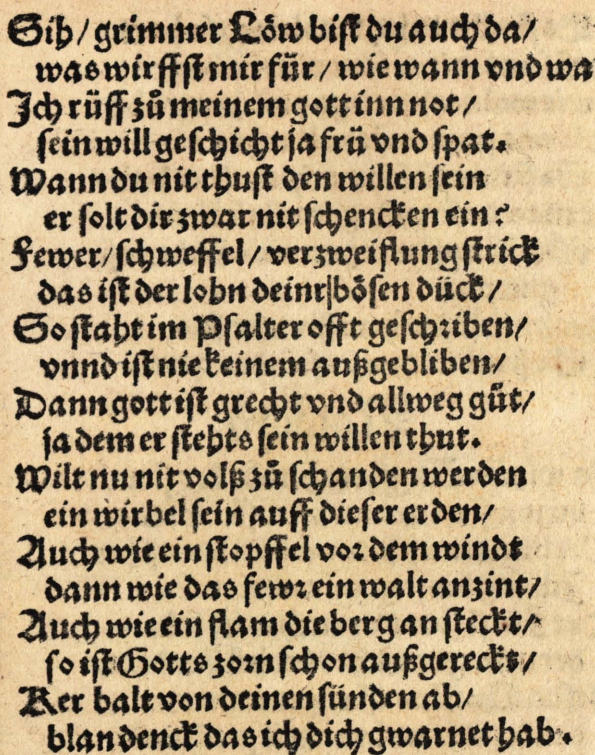 Sih / grimmer Löw bist du auch da /
was wirffst mir für / wie wann vnd wa
Ich rüff zů meinem gott inn not /
sein will geschicht ja frü vnd spat.
Wann du nit thust den willen sein
er solt dir zwar nit schencken ein?
Fewer / schweffel / verzweiflung strick
das ist der lohn deinr bösen dück /
So staht im Psalter offt geschriben /
vnnd ist nie keinem außgebliben /
Dann gott ist grecht vnd allweg güt /
ja dem er stehts sein willen thut.
Wilt nu nit volß zů schanden werden
ein wirbel sein auff dieser erden /
Auch wie ein stopffel vor dem windt
dann wie das fewr ein walt anzint /
Auch wie ein flam die berg an steckt /
so ist Gotts zorn schon außgereckt /
Ker balt von deinen sünden ab /
blan denck das ich dich gwarnet hab.